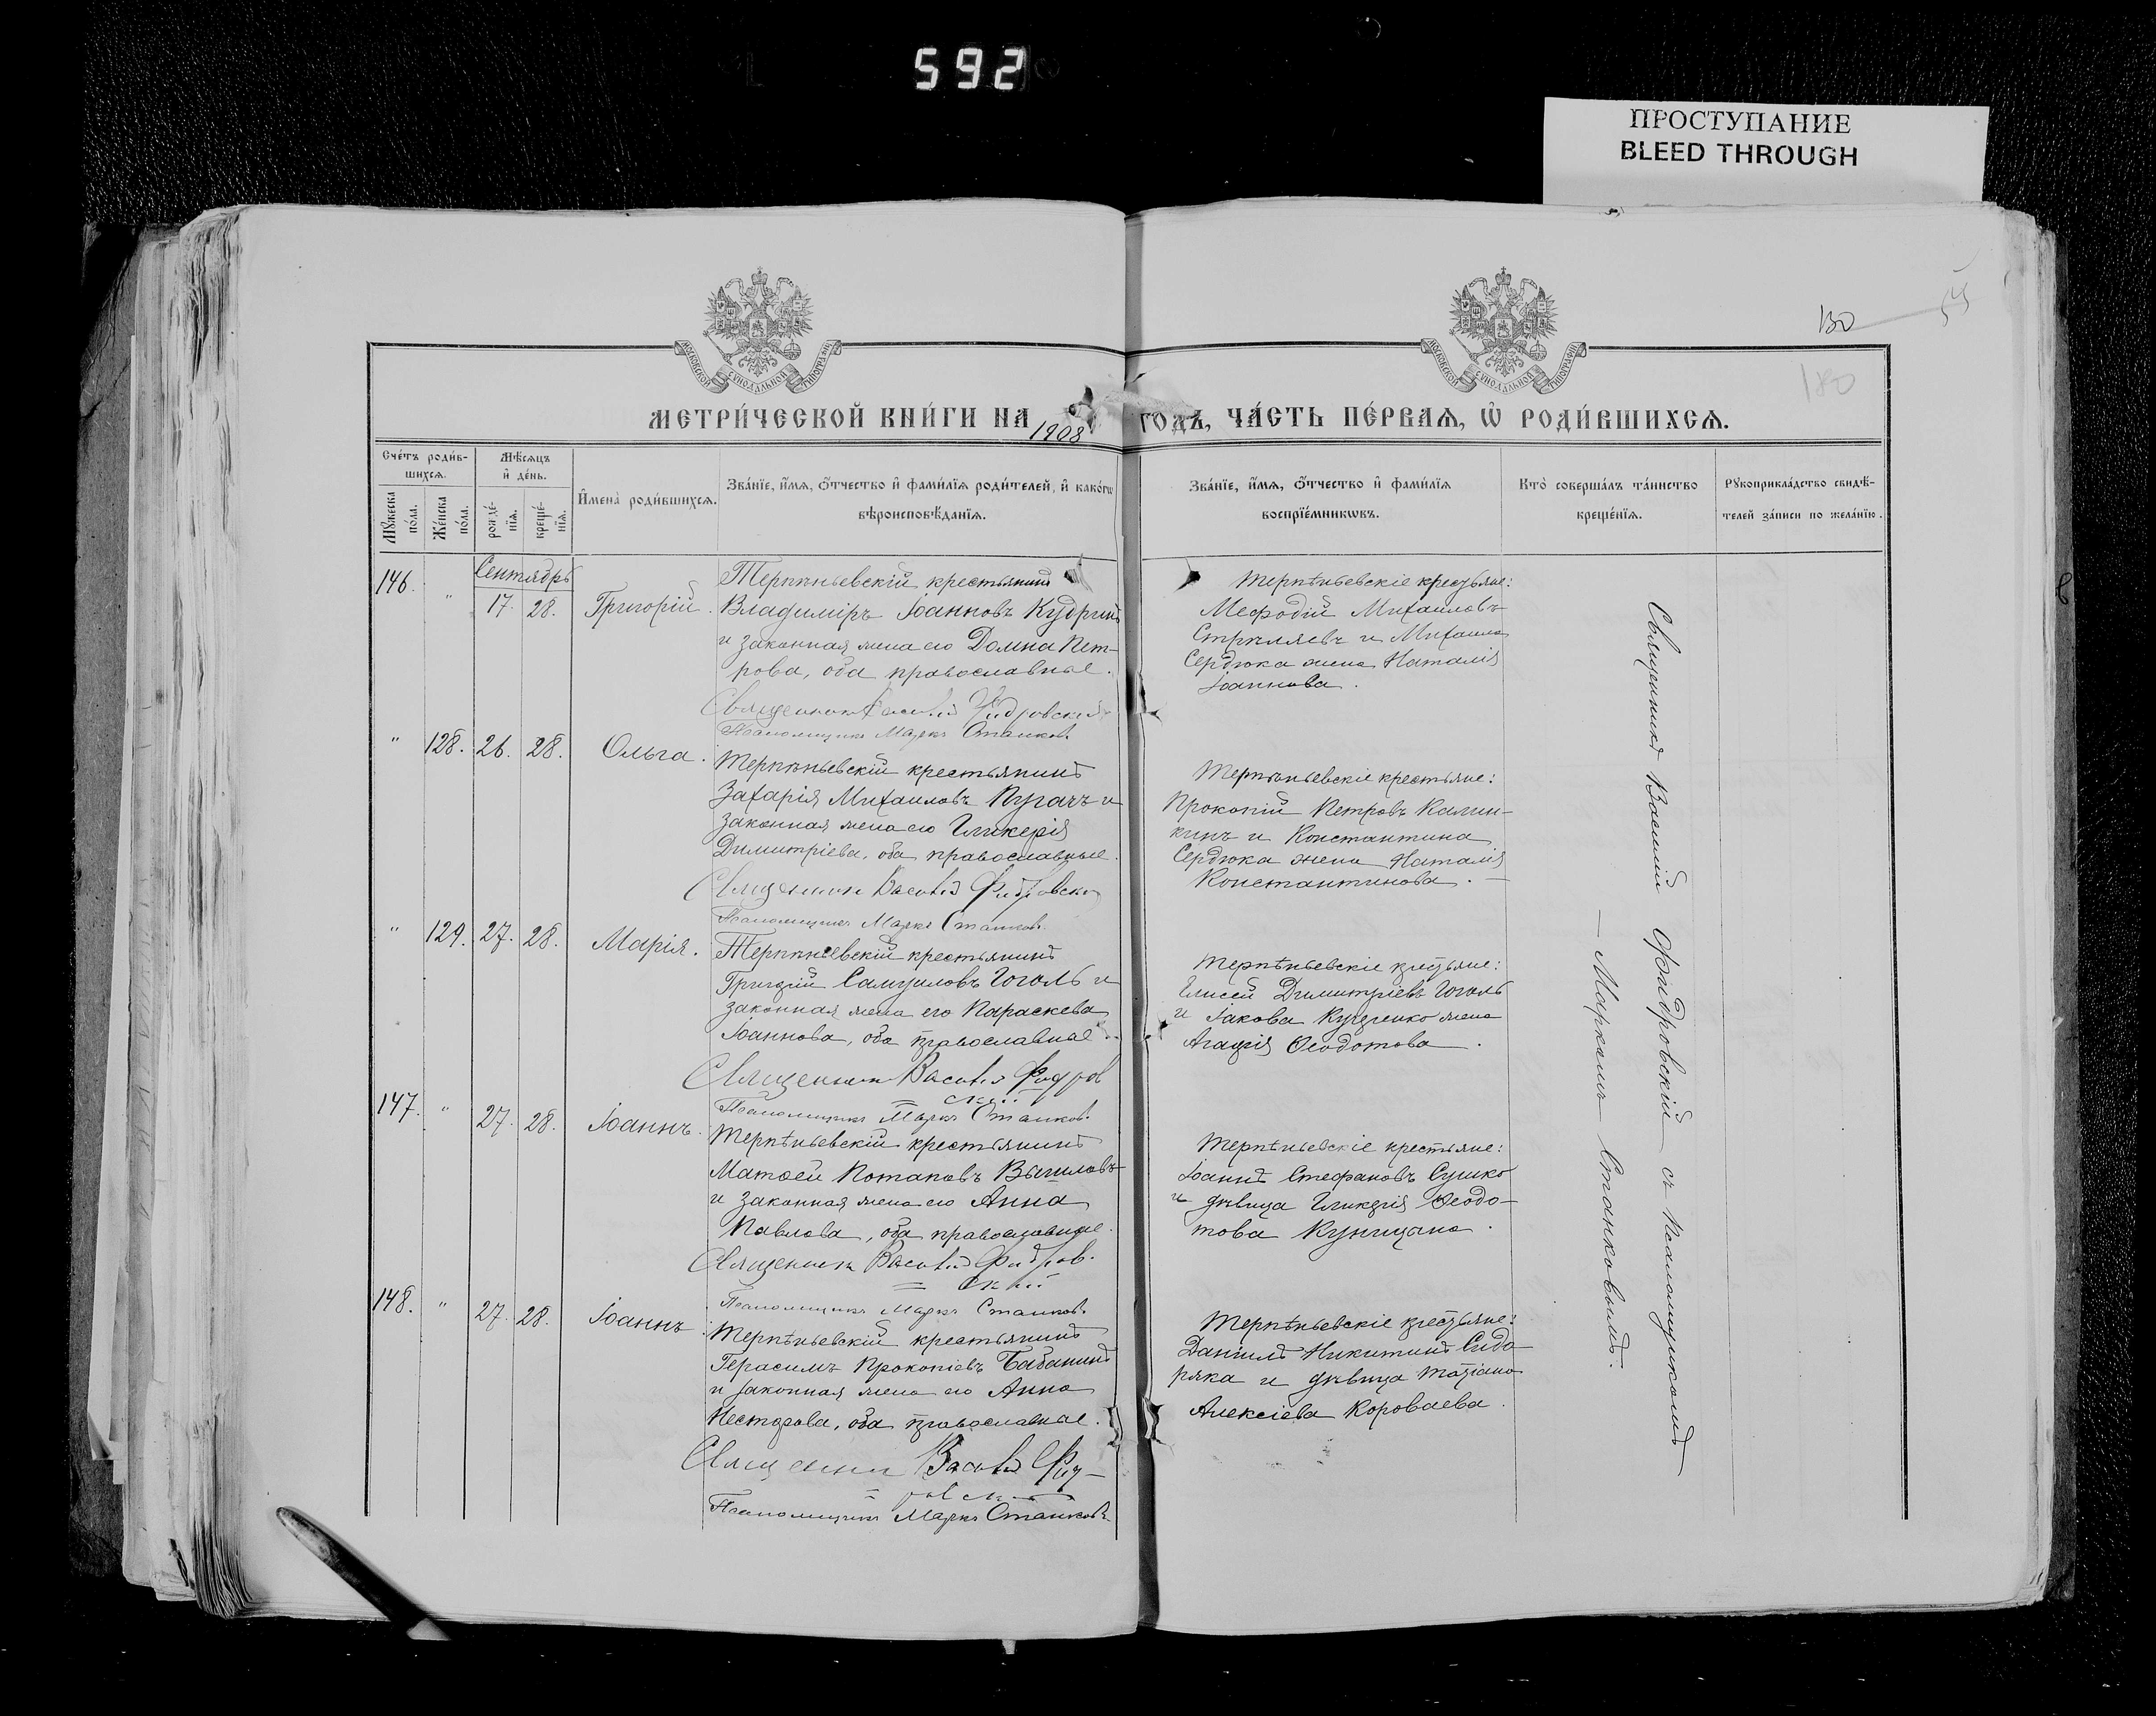 592
ПРОСТУПАНИЕ
BLEED THROUGH
130
180
МОСКОВСКОЙ СѴНОДАЛЬНОЙ ТИПОГРАФІИ
МОСКОВСКОЙ СѴНОДАЛЬНОЙ ТИПОГРАФІИ
МЕТРИ́ЧЕСКОЙ КНИ́ГИ НА 1908 ГОДЪ, ЧА́СТЬ ПЕ́РВАѦ, Ѡ҆ РОДИ́ВШИХСѦ.
Сче́тъ роди́в-
шихсѧ.
Мꙋжеска по́ла.
Же́нска по́ла.
Мѣ́сѧцъ
и҆ де́нь.
рожде́-
нїѧ.
креще́-
нїѧ.
И҆мена̀ роди́вшихсѧ.
Зва́нїе, и҆́мѧ, ѻ҆́тчество и҆ фами́лїѧ роди́телей, и҆ како́гѡ
вѣроисповѣ́данїѧ.
Зва́нїе, и҆́мѧ, ѻ҆́тчество и҆ фами́лїѧ
воспрїе́мникѡвъ.
Кто̀ соверша́лъ та́инство
креще́нїѧ.
Рꙋкоприкла́дство свидѣ́-
телей за́писи по жела́нїю.
Сентябрь
146. " 17. 28. Григорій.
Терпѣньевскій крестьянинъ
Владиміръ Іоанновъ Кудринъ
и законная жена его Домна Пет-
рова, оба православные.
Священникъ Василій Фидровскій
Псаломщикъ Маркъ Станковъ.
Терпѣньевскіе крестьяне:
Мефодій Михаиловъ
Стркляевъ и Михаила
Сердюка жена Наталія
Іоаннова.
" 128. 26. 28. Ольга.
Терпѣньевскій крестьянинъ
Захарія Михаиловъ Пугачъ и
законная жена его Гликерія
Димитріева, оба православные.
Священникъ Василій Фидровскій
Псаломщикъ Маркъ Станковъ.
Терпѣньевскіе крестьяне:
Прокопій Петровъ Калин-
кинъ и Константина
Сердюка жена Наталія
Константинова.
" 129. 27. 28. Марія.
Терпѣньевскій крестьянинъ
Григорій Самуиловъ Гоголь и
законная жена его Параскева
Іоаннова, оба православные.
Священникъ Василій Фидров
= скій
Псаломщикъ Маркъ Станковъ.
Терпѣньевскіе крестьяне:
Елисей Димитріевъ Гоголь
и Іакова Куценко жена
Агафія Ѳеодотова.
147. " 27. 28. Іоаннъ.
Терпѣньевскій крестьянинъ
Матѳей Потаповъ Вычиловъ
и законная жена его Анна
Павлова, оба православные.
Священникъ Василій Фидров.
= скій
Псаломщикъ Маркъ Станковъ.
Терпѣньевскіе крестьяне:
Іоаннъ Стефановъ Сушко
и дѣвица Гликерія Ѳеодо-
това Куницына.
148. " 27. 28. Іоаннъ.
Терпѣньевскій крестьянинъ
Герасимъ Прокопіевъ Бабанинъ
и законная жена его Анна
Несторова, оба православные.
Священникъ Василій Фид-
= ровскій
Псаломщикъ Маркъ Станковъ.
Терпѣньевскіе крестьяне:
Даніилъ Никитинъ Сидо-
ряка и дѣвица Татіана
Алексіева Короваева.
Священникъ Василій Фидровскій съ псаломщикомъ
— Маркомъ Станковымъ.